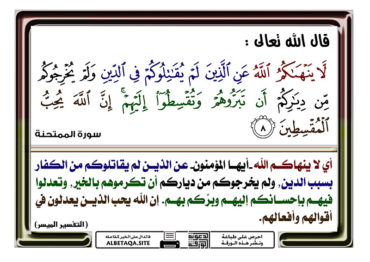 قال الله تعالى :
لَّا يَنْهَىٰكُمُ ٱللَّهُ عَنِ ٱلَّذِينَ لَمْ يُقَٰتِلُوكُمْ فِي ٱلدِّينِ وَلَمْ يُخْرِجُوكُم
مِّن دِيَٰرِكُمْ أَن تَبَرُّوهُمْ وَتُقْسِطُوٓا۟ إِلَيْهِمْ ۚ إِنَّ ٱللَّهَ يُحِبُّ
ٱلْمُقْسِطِينَ ٨
سورة الممتحنة
أي لا ينهاكم الله -أيها المؤمنون- عن الذين لم يقاتلوكم من الكفار
بسبب الدين, ولم يخرجوكم من دياركم أن تكرموهم بالخير, وتعدلوا
فيهم بإحسانكم إليهم وبرِّكم بهم. إن الله يحب الذين يعدلون في
أقوالهم وأفعالهم.
( التفسير الميسر )
احرص على طباعة
ونشر هذه الورقة
الدال على الخير كفاعله
ALBETAQA.SITE